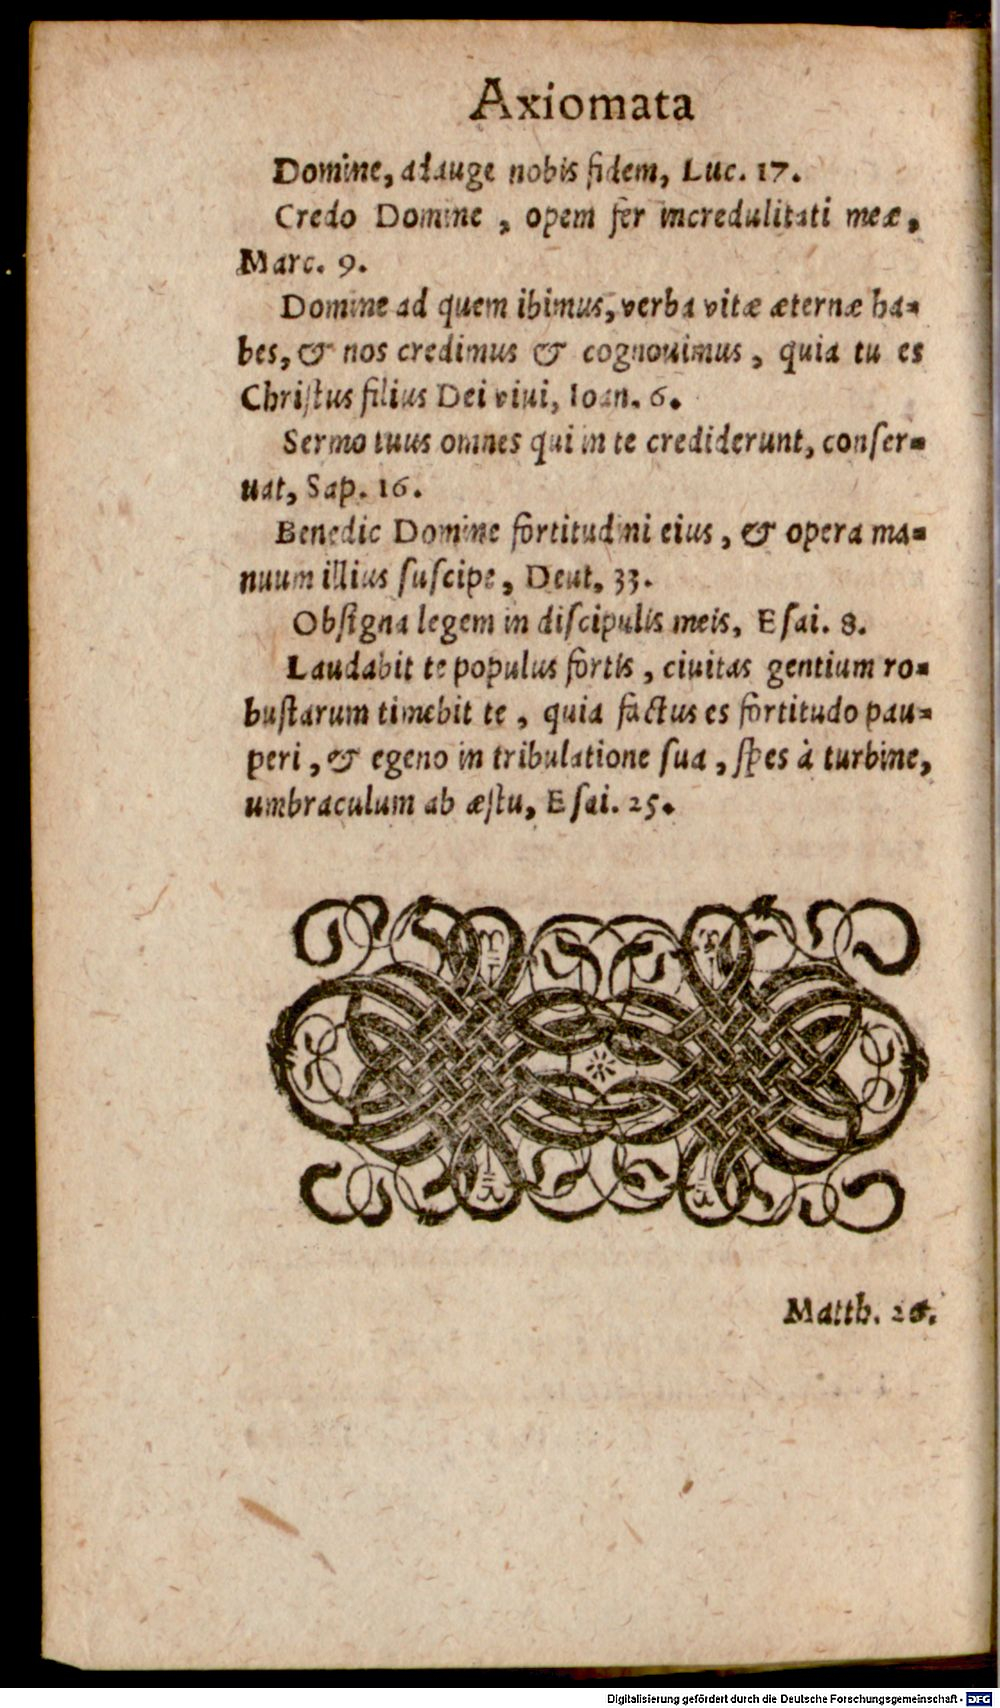 Axiomata
Domine, adauge nobis fidem, Luc. 17.
Credo Domine , opem fer incredulitati meæ,
Marc. 9.
Domine ad quem ibimus, verba vitæ æternæ ha-
bes, & nos credimus & cognouimus , quia tu es
Chriſtus filius Dei viui, Ioan. 6.
Sermo tuus omnes qui in te crediderunt, conſer-
uat, Sap. 16.
Benedic Domine fortitudini eius , & opera ma-
nuum illius ſuſcipe , Deut, 33.
Obſigna legem in diſcipulis meis, Eſai. 8.
Laudabit te populus fortis , ciuitas gentium ro-
buſtarum timebit te , quia factus es fortitudo pau-
peri , & egeno in tribulatione ſua , ſpes à turbine,
umbraculum ab æſtu, Eſai. 25.
Matth.
Digitalisierung gefördert durch die Deutsche Forschungsgemeinschaft - DFG